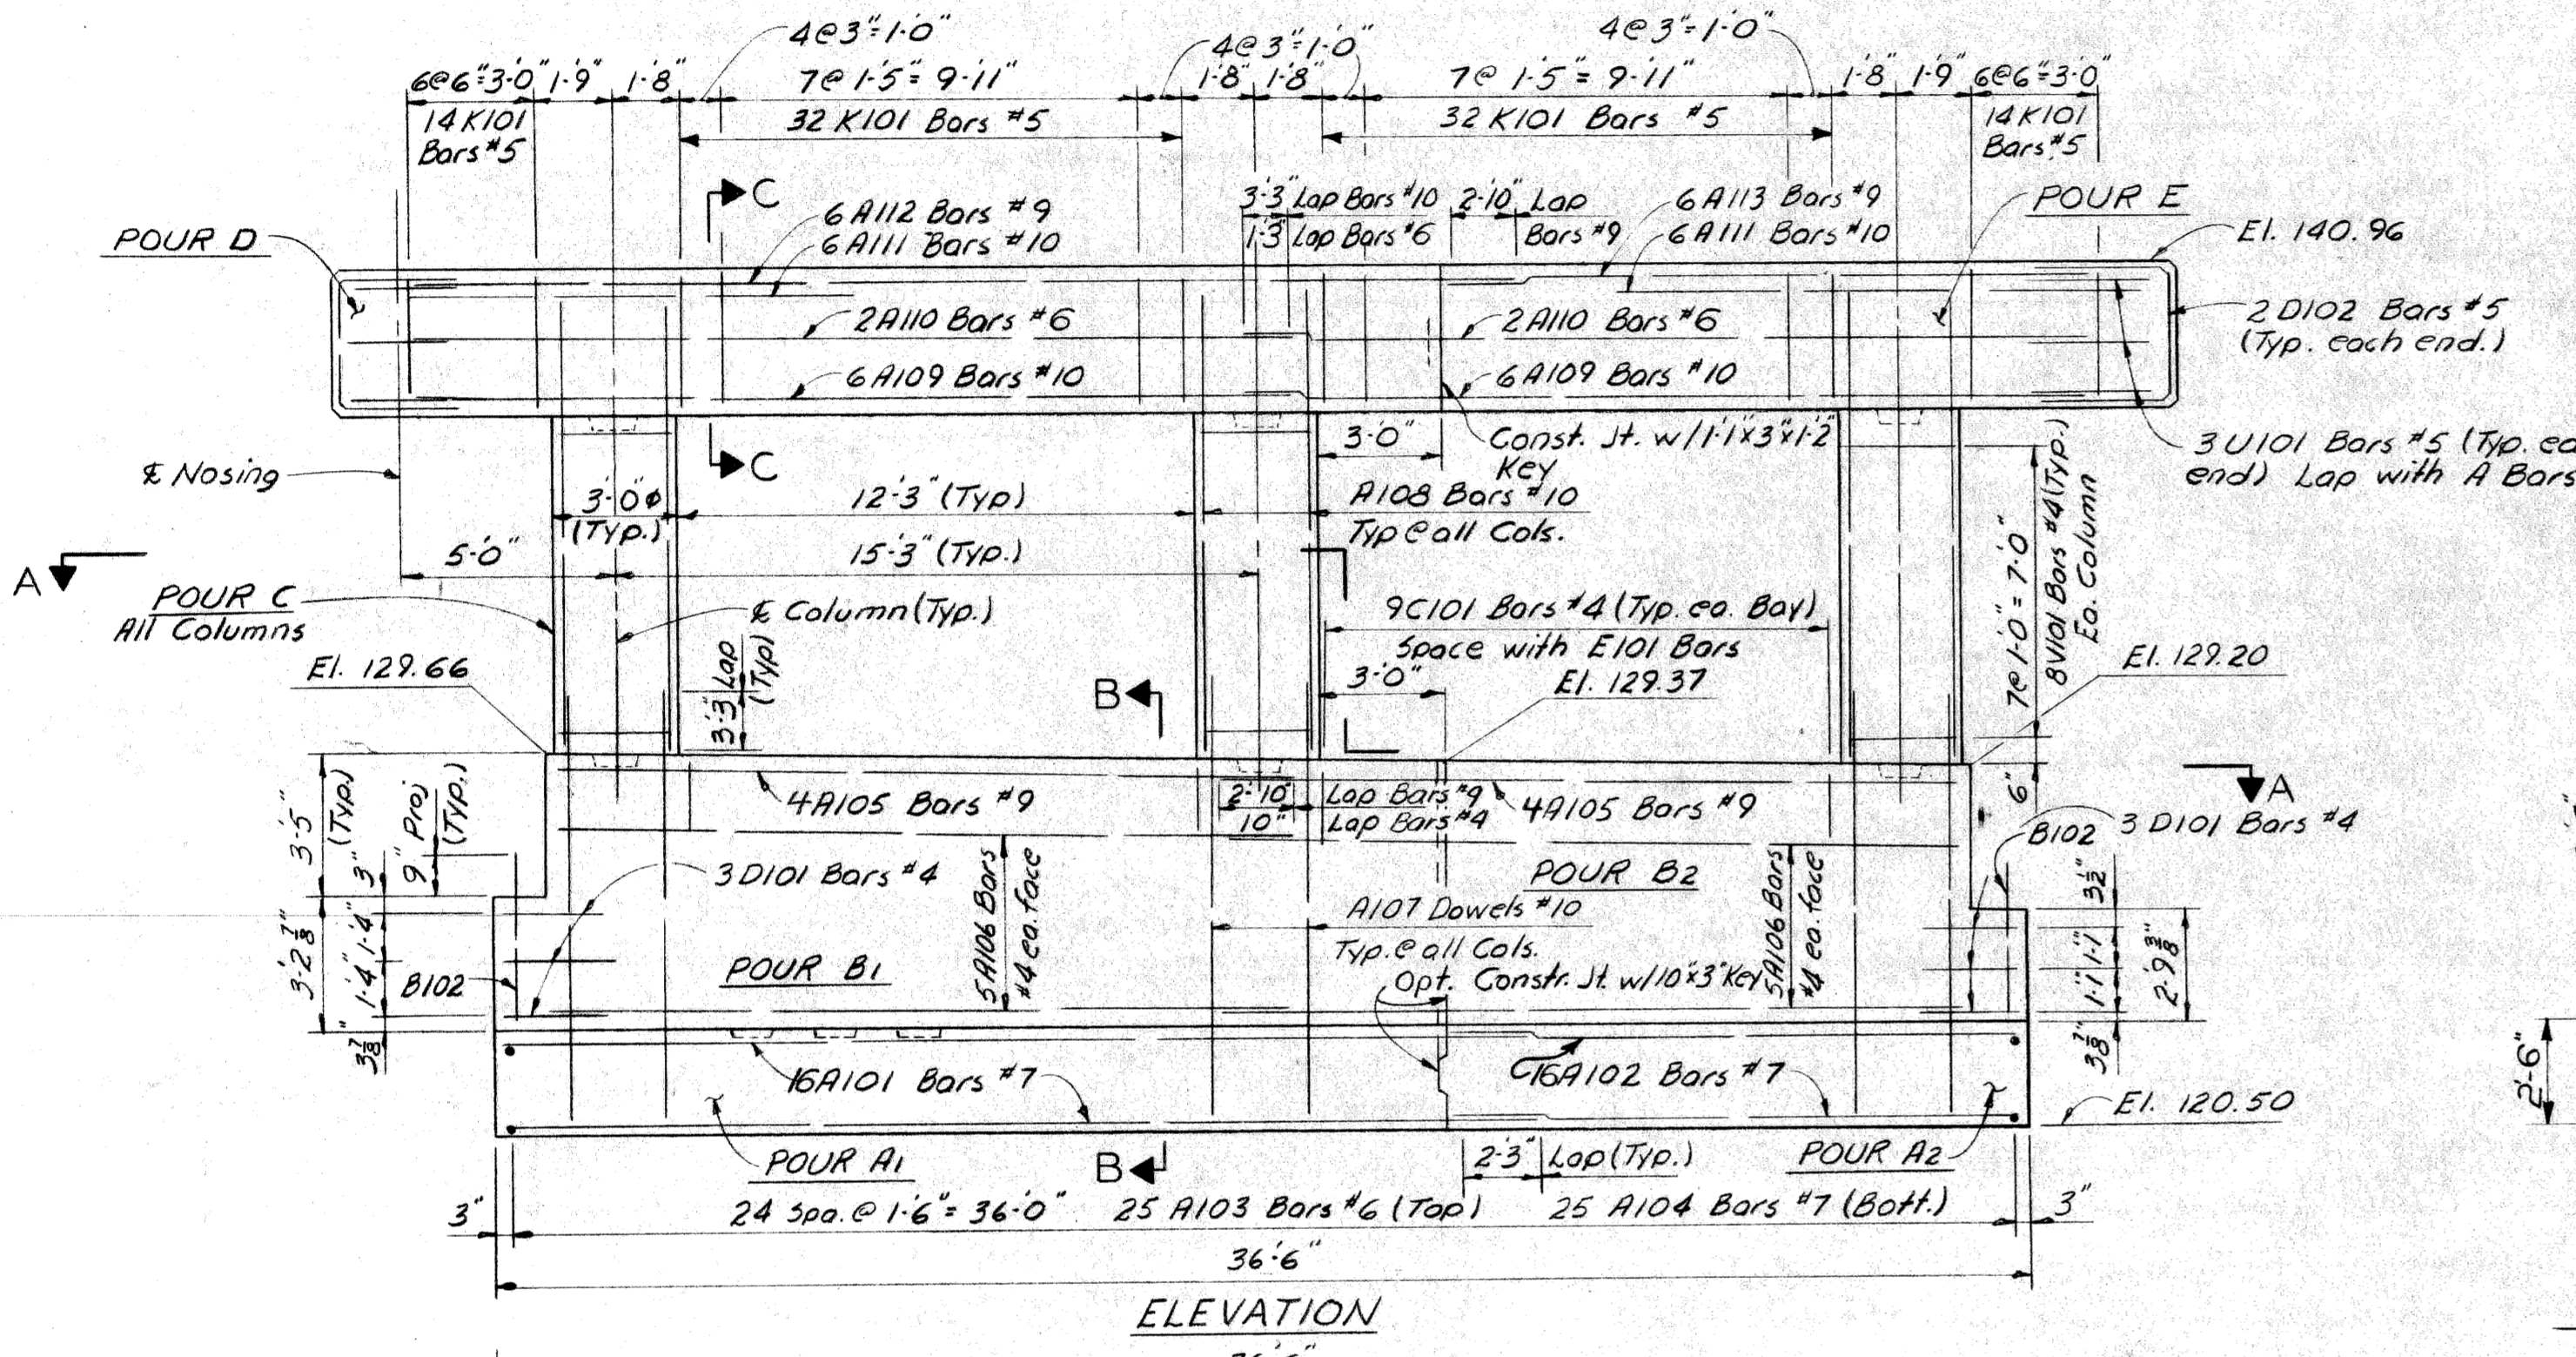 4@3"=1'-0"
4@3"=1'-0"
4@3"=1'-0"
6@6"=3'-0" 1'-9" 1'-8" 7@ 1'-5" = 9'-11" 1'-8" 1'-8" 7@ 1'-5" = 9'-11" 1'-8" 1'-9" 6@6"=3'-0"
14 K101
Bars #5
32 K101 Bars #5
32 K101 Bars #5
14 K101
Bars #5
C
6 A112 Bars #9
6 A111 Bars #10
3'-3" Lap Bars #10
1'-3" Lap Bars #6
2'-10" Lap
Bars #9
6 A113 Bars #9
6 A111 Bars #10
POUR E
El. 140.96
POUR D
2 A110 Bars #6
2 A110 Bars #6
2 D102 Bars #5
(Typ. each end.)
6 A109 Bars #10
6 A109 Bars #10
3'-0"
Const. Jt. w/1'-1"x3"x1'-2"
Key
3 U101 Bars #5 (Typ. ea
end) Lap with A Bars
C
℄ Nosing
3'-0"ø
(Typ.)
12'-3" (Typ)
A108 Bars #10
Typ @ all Cols.
5'-0"
15'-3" (Typ.)
A
POUR C
All Columns
℄ Column (Typ.)
9C101 Bars #4 (Typ. ea. Bay)
Space with E101 Bars
7@ 1'-0" = 7'-0"
8V101 Bars #4 (Typ.)
Ea. Column
El. 129.66
3'-3" Lap
(Typ)
B
3'-0"
El. 129.37
El. 129.20
6"
A
3'-5"
(Typ.)
9" Proj
(Typ.)
4A105 Bars #9
2'-10" Lap Bars #9
10" Lap Bars #4
4A105 Bars #9
B102
3 D101 Bars #4
3"
3 D101 Bars #4
5A106 Bars
#4 ea. face
POUR B2
5A106 Bars
#4 ea. face
3½"
A107 Dowels #10
Typ. @ all Cols.
3'-2⅞"
1'-4" 1'-4"
B102
POUR B1
Opt. Constr. Jt. w/10"x3" Key
1'-1" 1'-1"
2'-9⅜"
3⅞"
3⅞"
16A101 Bars #7
16A102 Bars #7
El. 120.50
2'-6"
POUR A1
B
2'-3" Lap (Typ.)
POUR A2
3"
24 Spa. @ 1'-6" = 36'-0" 25 A103 Bars #6 (Top) 25 A104 Bars #7 (Bott.)
3"
36'-6"
ELEVATION